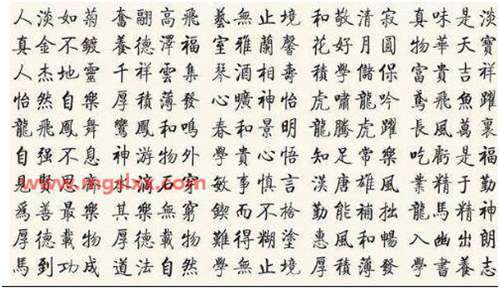 人淡如菊 奮翮高飛 藝無止境 和敬清寂 真味是淡
真金不鍍 養德澤福 室雅蘭馨 花好月圓 物華天寶
人杰地靈 千祥雲集 琴酒 壽 積學儲保 富貴吉祥
怡然自樂 厚積薄發 心曠神怡 虎嘯龍吟 鳶飛魚躍
龍飛鳳舞 鸞鳳和鳴 春和景明 龍騰虎躍 長風萬裏
自强不息 神游物外 學貴心悟 知足常樂 吃虧是福
見賢 敏事慎言 漢唐雄風 業精於勤
www.mgslxx.com
爲善最樂 其樂無窮 鍥而不捨 勤能補拙 龍馬精神
厚德載物 難得糊塗 惠風和暢 入幽出朗
馬到功成 道法自然 學無止境 厚積薄發 學書養志